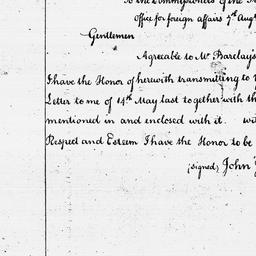 To the Commissioners of the
Office for foreign affairs 7th Aug
Gentlemen
Agreable to Mr Barclay's
I have the Honor of herewith transmitting to
Letter to me of 14th May last together with th
mentioned in and enclosed with it. wi
Respect and Esteem I have the Honor to be
(signed) John